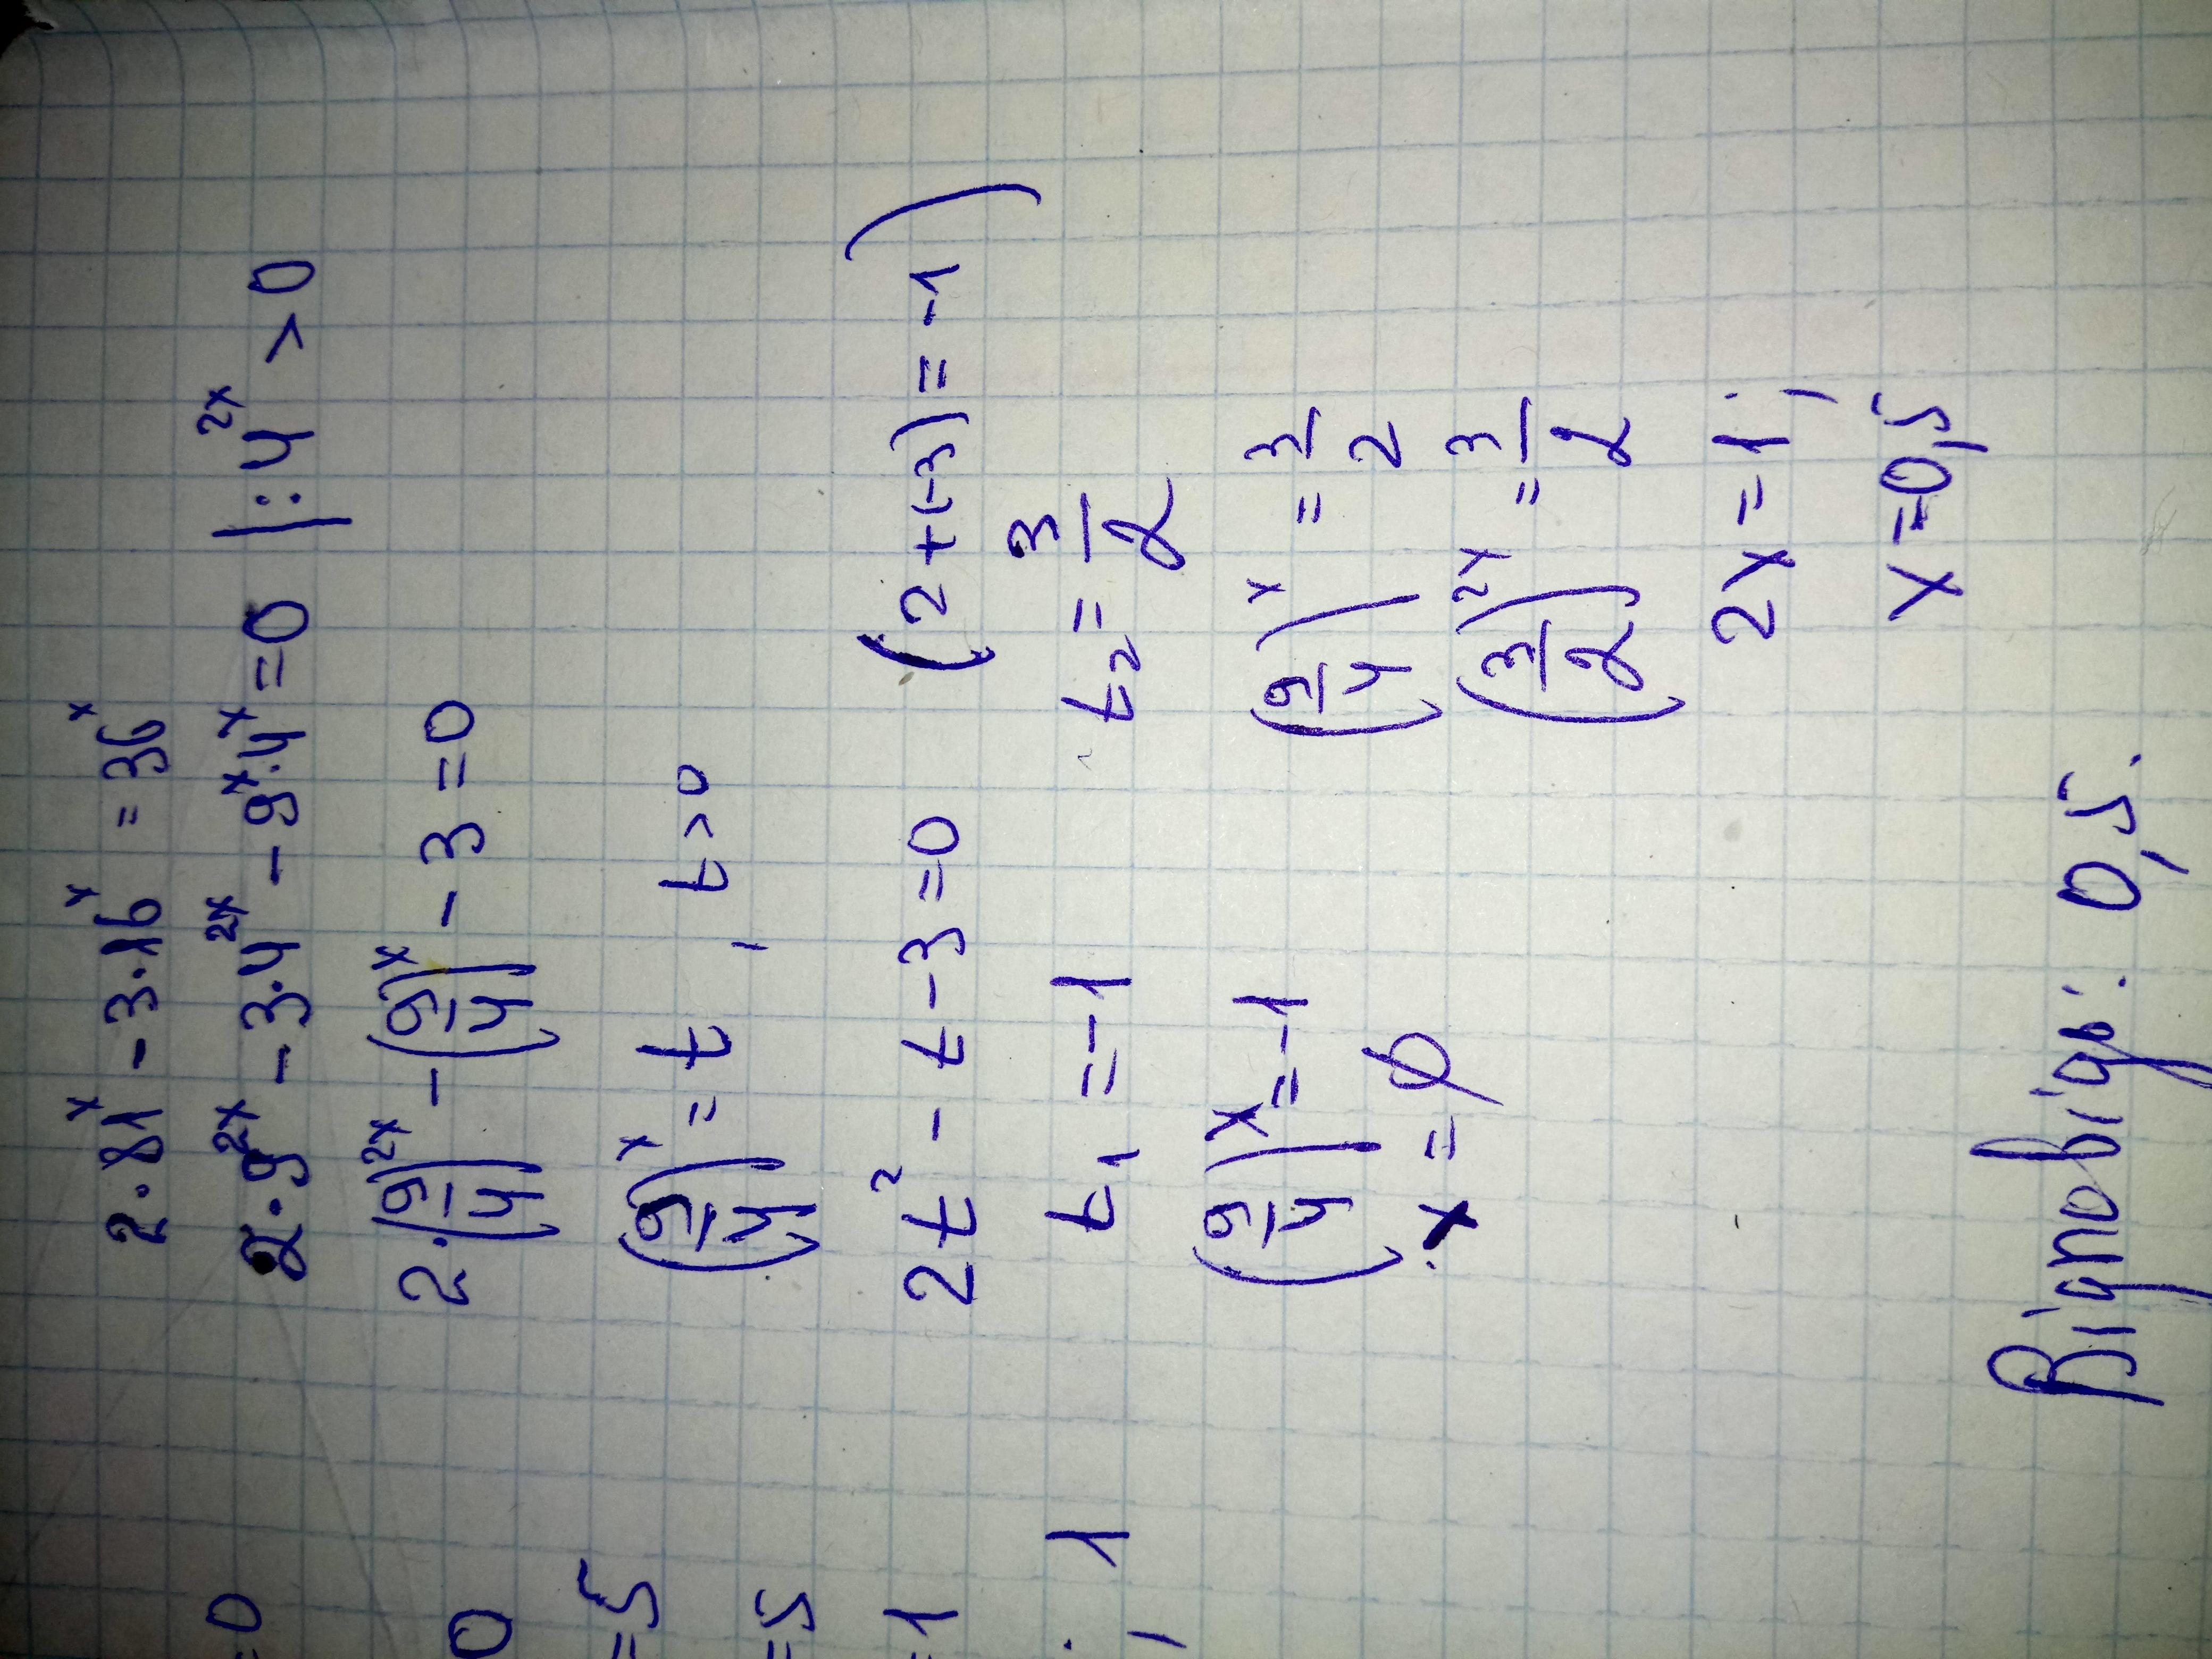 2·81ˣ - 3·16ˣ = 36ˣ
2·9²ˣ - 3·4²ˣ - 9ˣ·4ˣ = 0 |: 4²ˣ > 0
2·(9/4)²ˣ - (9/4)ˣ - 3 = 0
(9/4)ˣ = t, t > 0
2t² - t - 3 = 0 (2 + (-3) = -1)
t₁ = -1 t₂ = 3/2
(9/4)ˣ = -1 (9/4)ˣ = 3/2
x = ∅ (3/2)²ˣ = 3/2
2x = 1;
x = 0,5
Відповідь: 0,5.
=0
0
=5
=5
=1
; 1